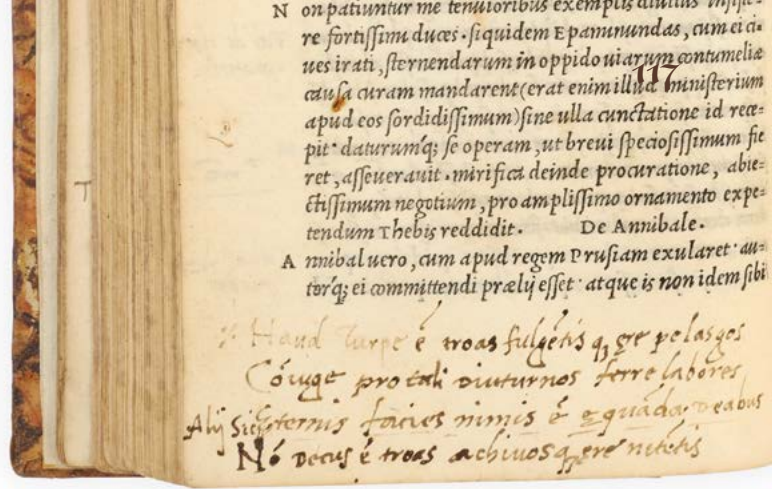 N on patiuntur me tenuioribus exemplis diutius
re fortissimi duces. siquidem Epaminundas, cum ei ci=
ues irati, sternendarum in oppido uiarum contumeliæ
causa curam mandarent (erat enim illud ministerium
117
apud eos sordidissimum) sine ulla cunctatione id rece=
pit· daturumq́; se operam, ut breui speciosissimum fie
ret, asseuerauit. mirifica deinde procuratione, abie=
ctissimum negotium, pro amplissimo ornamento expe=
tendum Thebis reddidit. De Annibale.
A nnibal uero, cum apud regem Prusiam exularet· au=
torq́; ei committendi prælij esset· atque is non idem sibi
Haud Turpe ē troas fulgētis q, gre pelasgos
Cōiuge pro tali diuturnos ferre labores
Alij Sic Eternis facies nimis ē equāda Deabus
Nō Decus ē troas achiuosq, ere nitētis
T